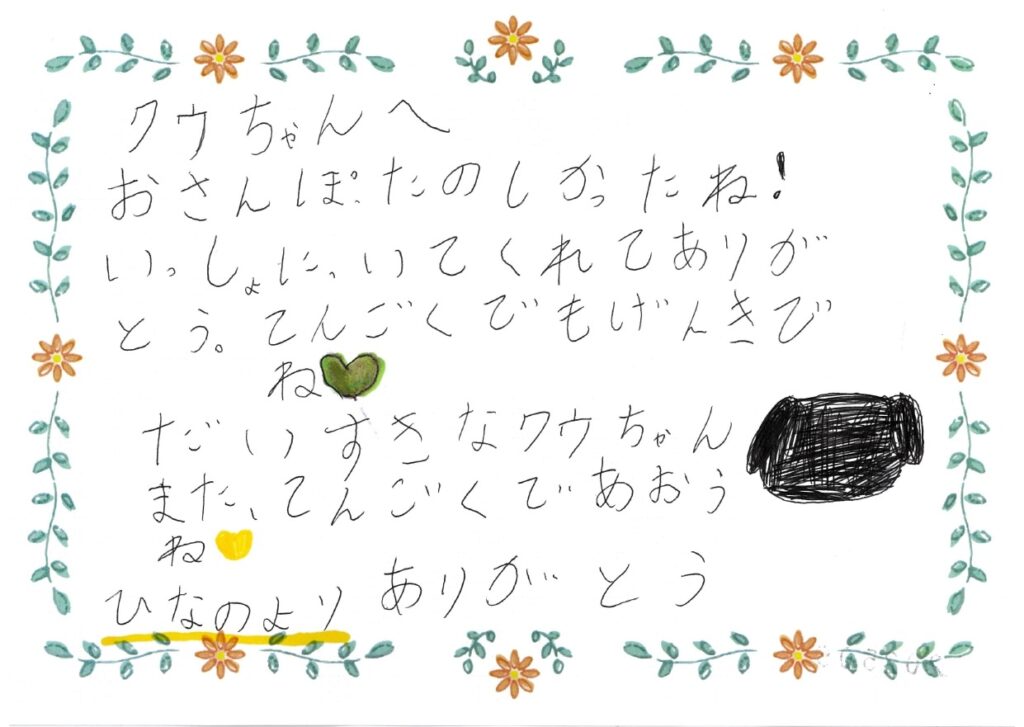 クウちゃんへ
おさんぽ、たのしかったね!
いっしょに、いてくれてありが
とう。てんごくでもげんきで
ね
だいすきなクウちゃん
また、てんごくであおう
ね
ありがとう
ひなのより